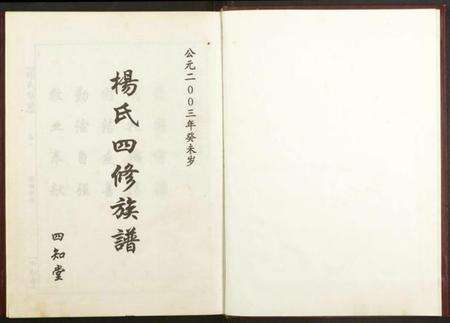 公元二00三年癸未岁
楊氏四修族譜
四知堂